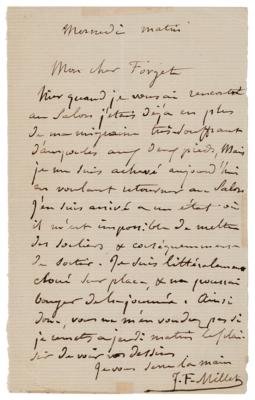 Mercredi matin
Mon cher Forget
Hier quand je vous ai rencontré
au Salon j'étais déjà en plus
de ma migraine très souffrant
d'ampoules aux deux pieds. Mais
je me suis achevé aujourd'hui
en voulant retourner au Salon
J'en suis arrivé à un état où
il m'est impossible de mettre
des souliers & conséquemment
de sortir. Je suis littéralement
cloué sur place, & ne pouvant
bouger de la journée. Ainsi
donc, vous ne m'en voudrez pas si
je remets à jeudi matin le plai-
sir de voir vos dessins
Je vous serre la main
J. F. Millet